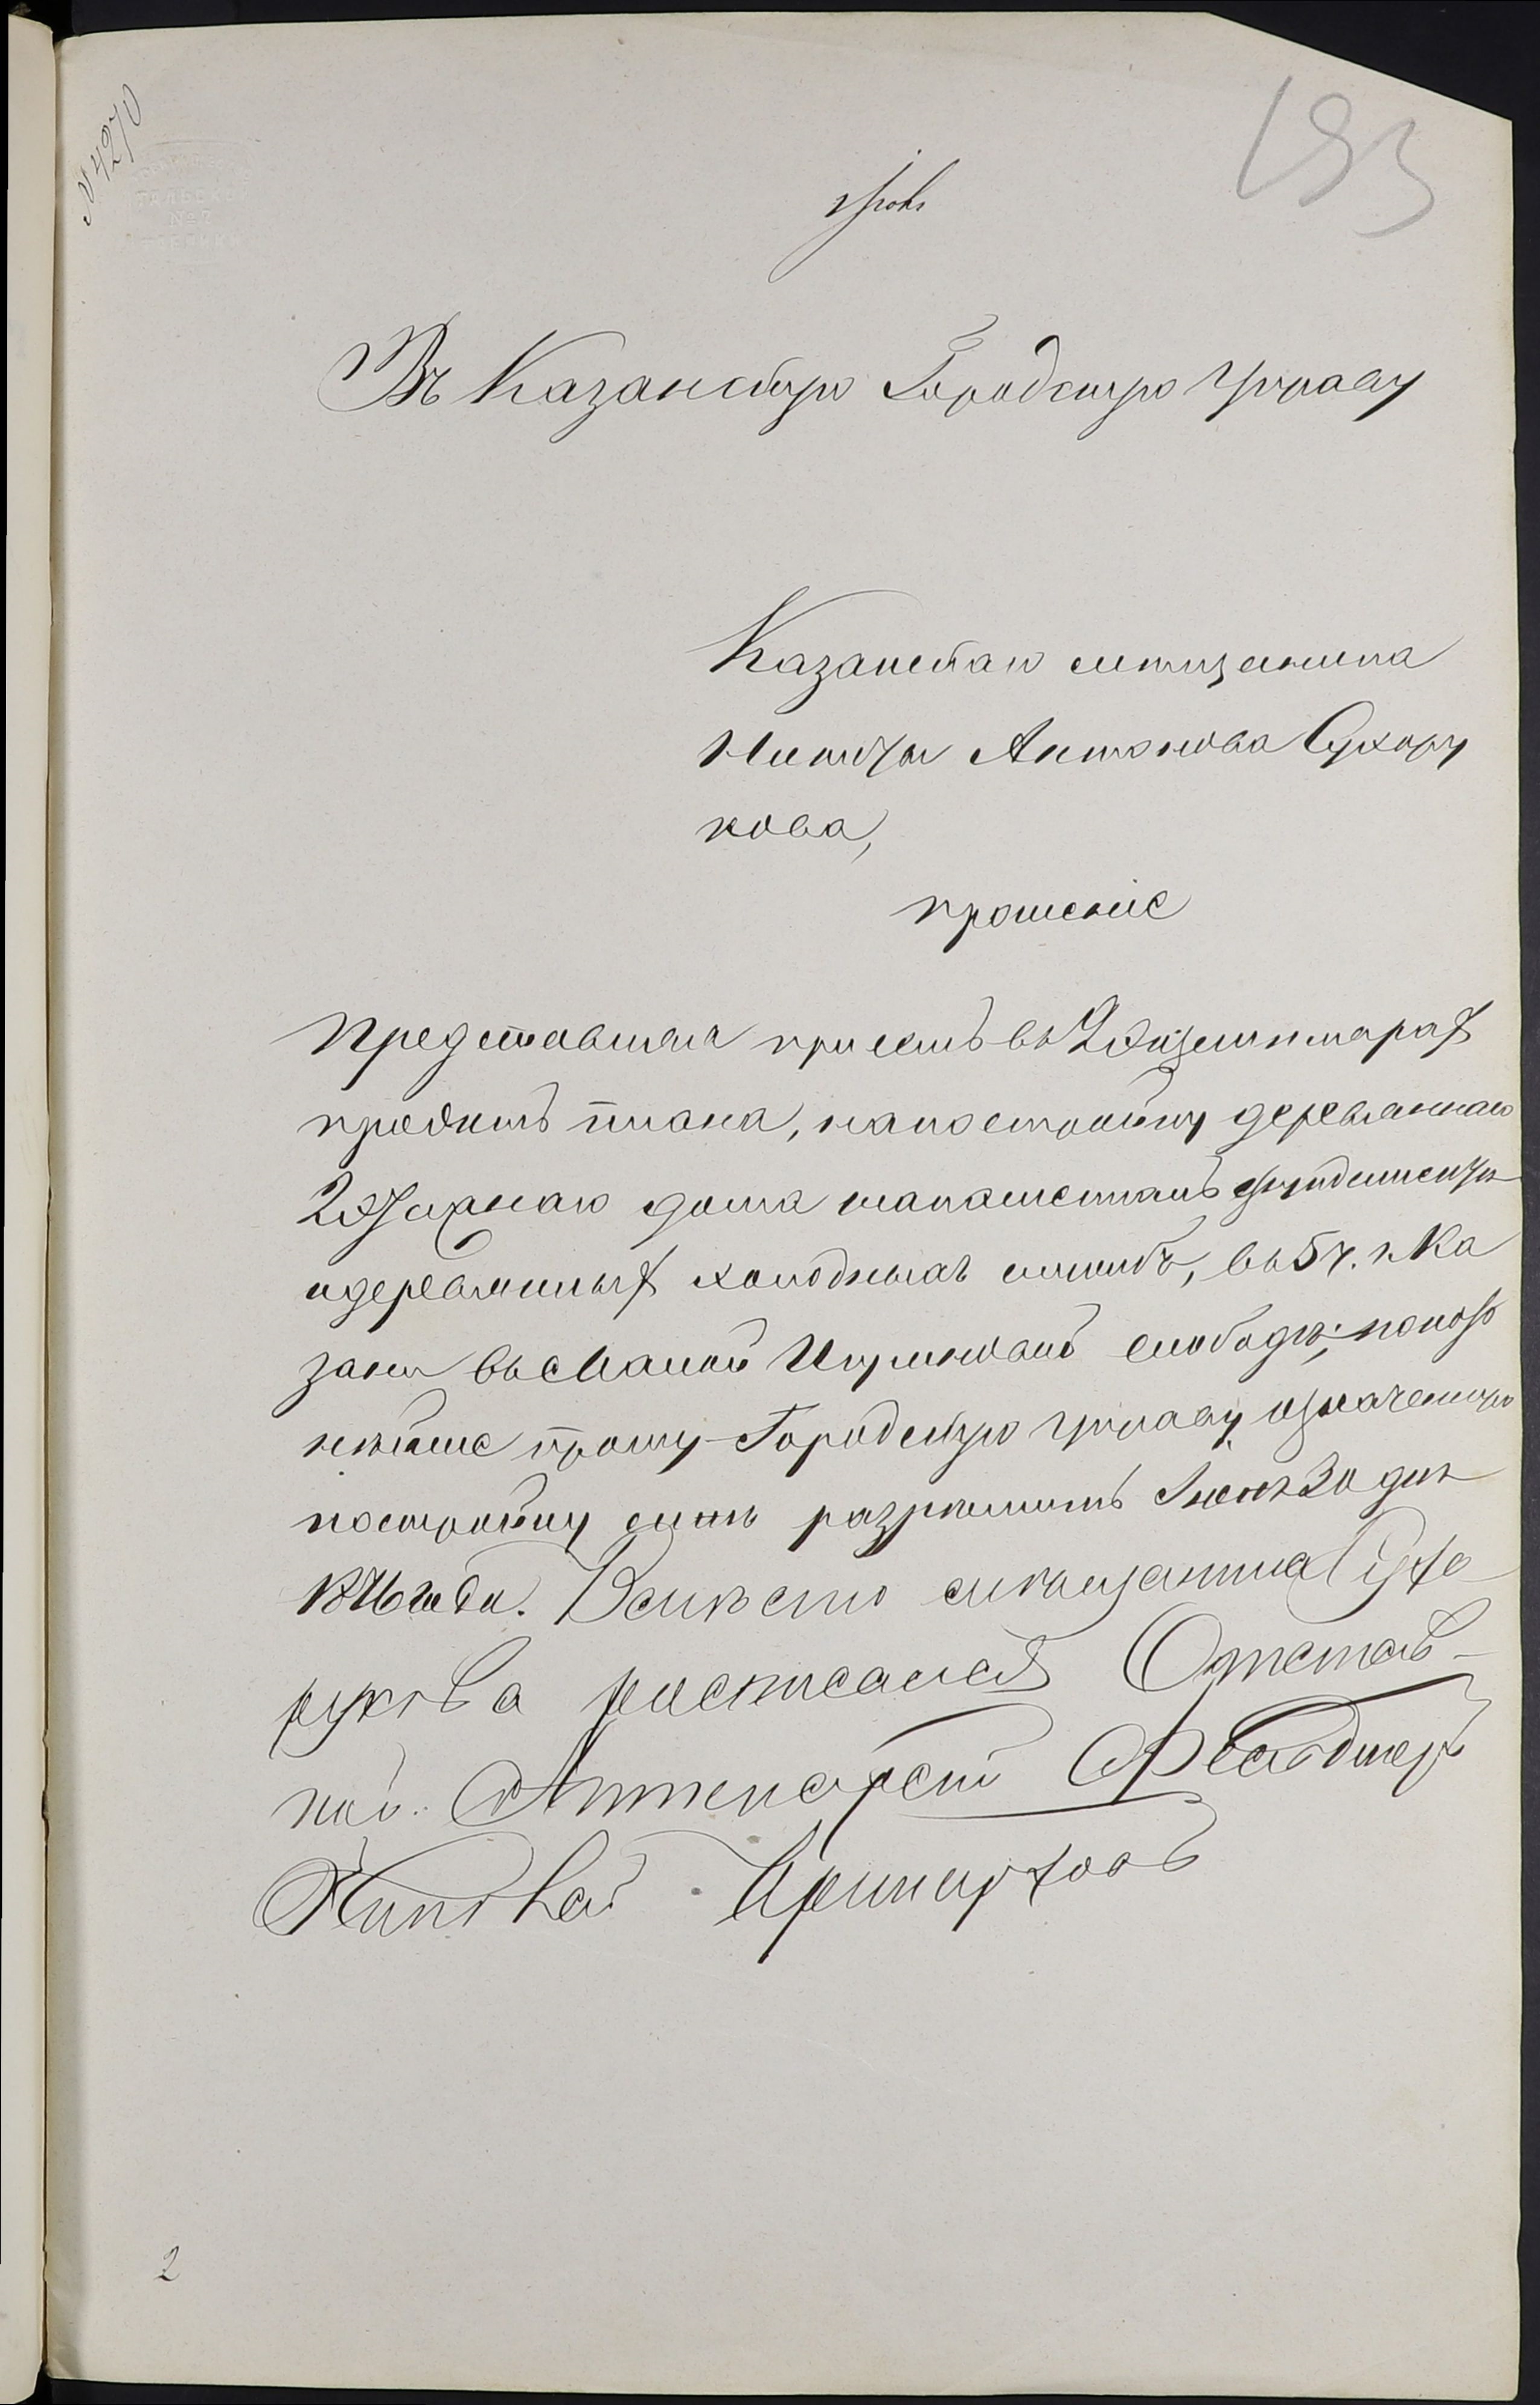 N 4270
193
Въ Казанскую Городскую управу
Казанскаго мѣщанина
Никиты Антонова Сухору
кова,
прошеніе
Представляя при семъ въ 2 экземплярах
проектъ плана, на постройку деревяннаго
2 этажнаго дома на каменномъ фундаментѣ
и деревянных холодныхъ службъ, въ 5 ч. г. Ка
зани въ Малой Игумновой слободѣ; покор
нѣйше прошу Городскую управу означенную
постройку мнѣ разрѣшить Іюня 30 дня
1876 года. Вмѣсто мѣщанина Сухо
рукова росписался Отстав-
ной Аптекарскій Фельдшеръ